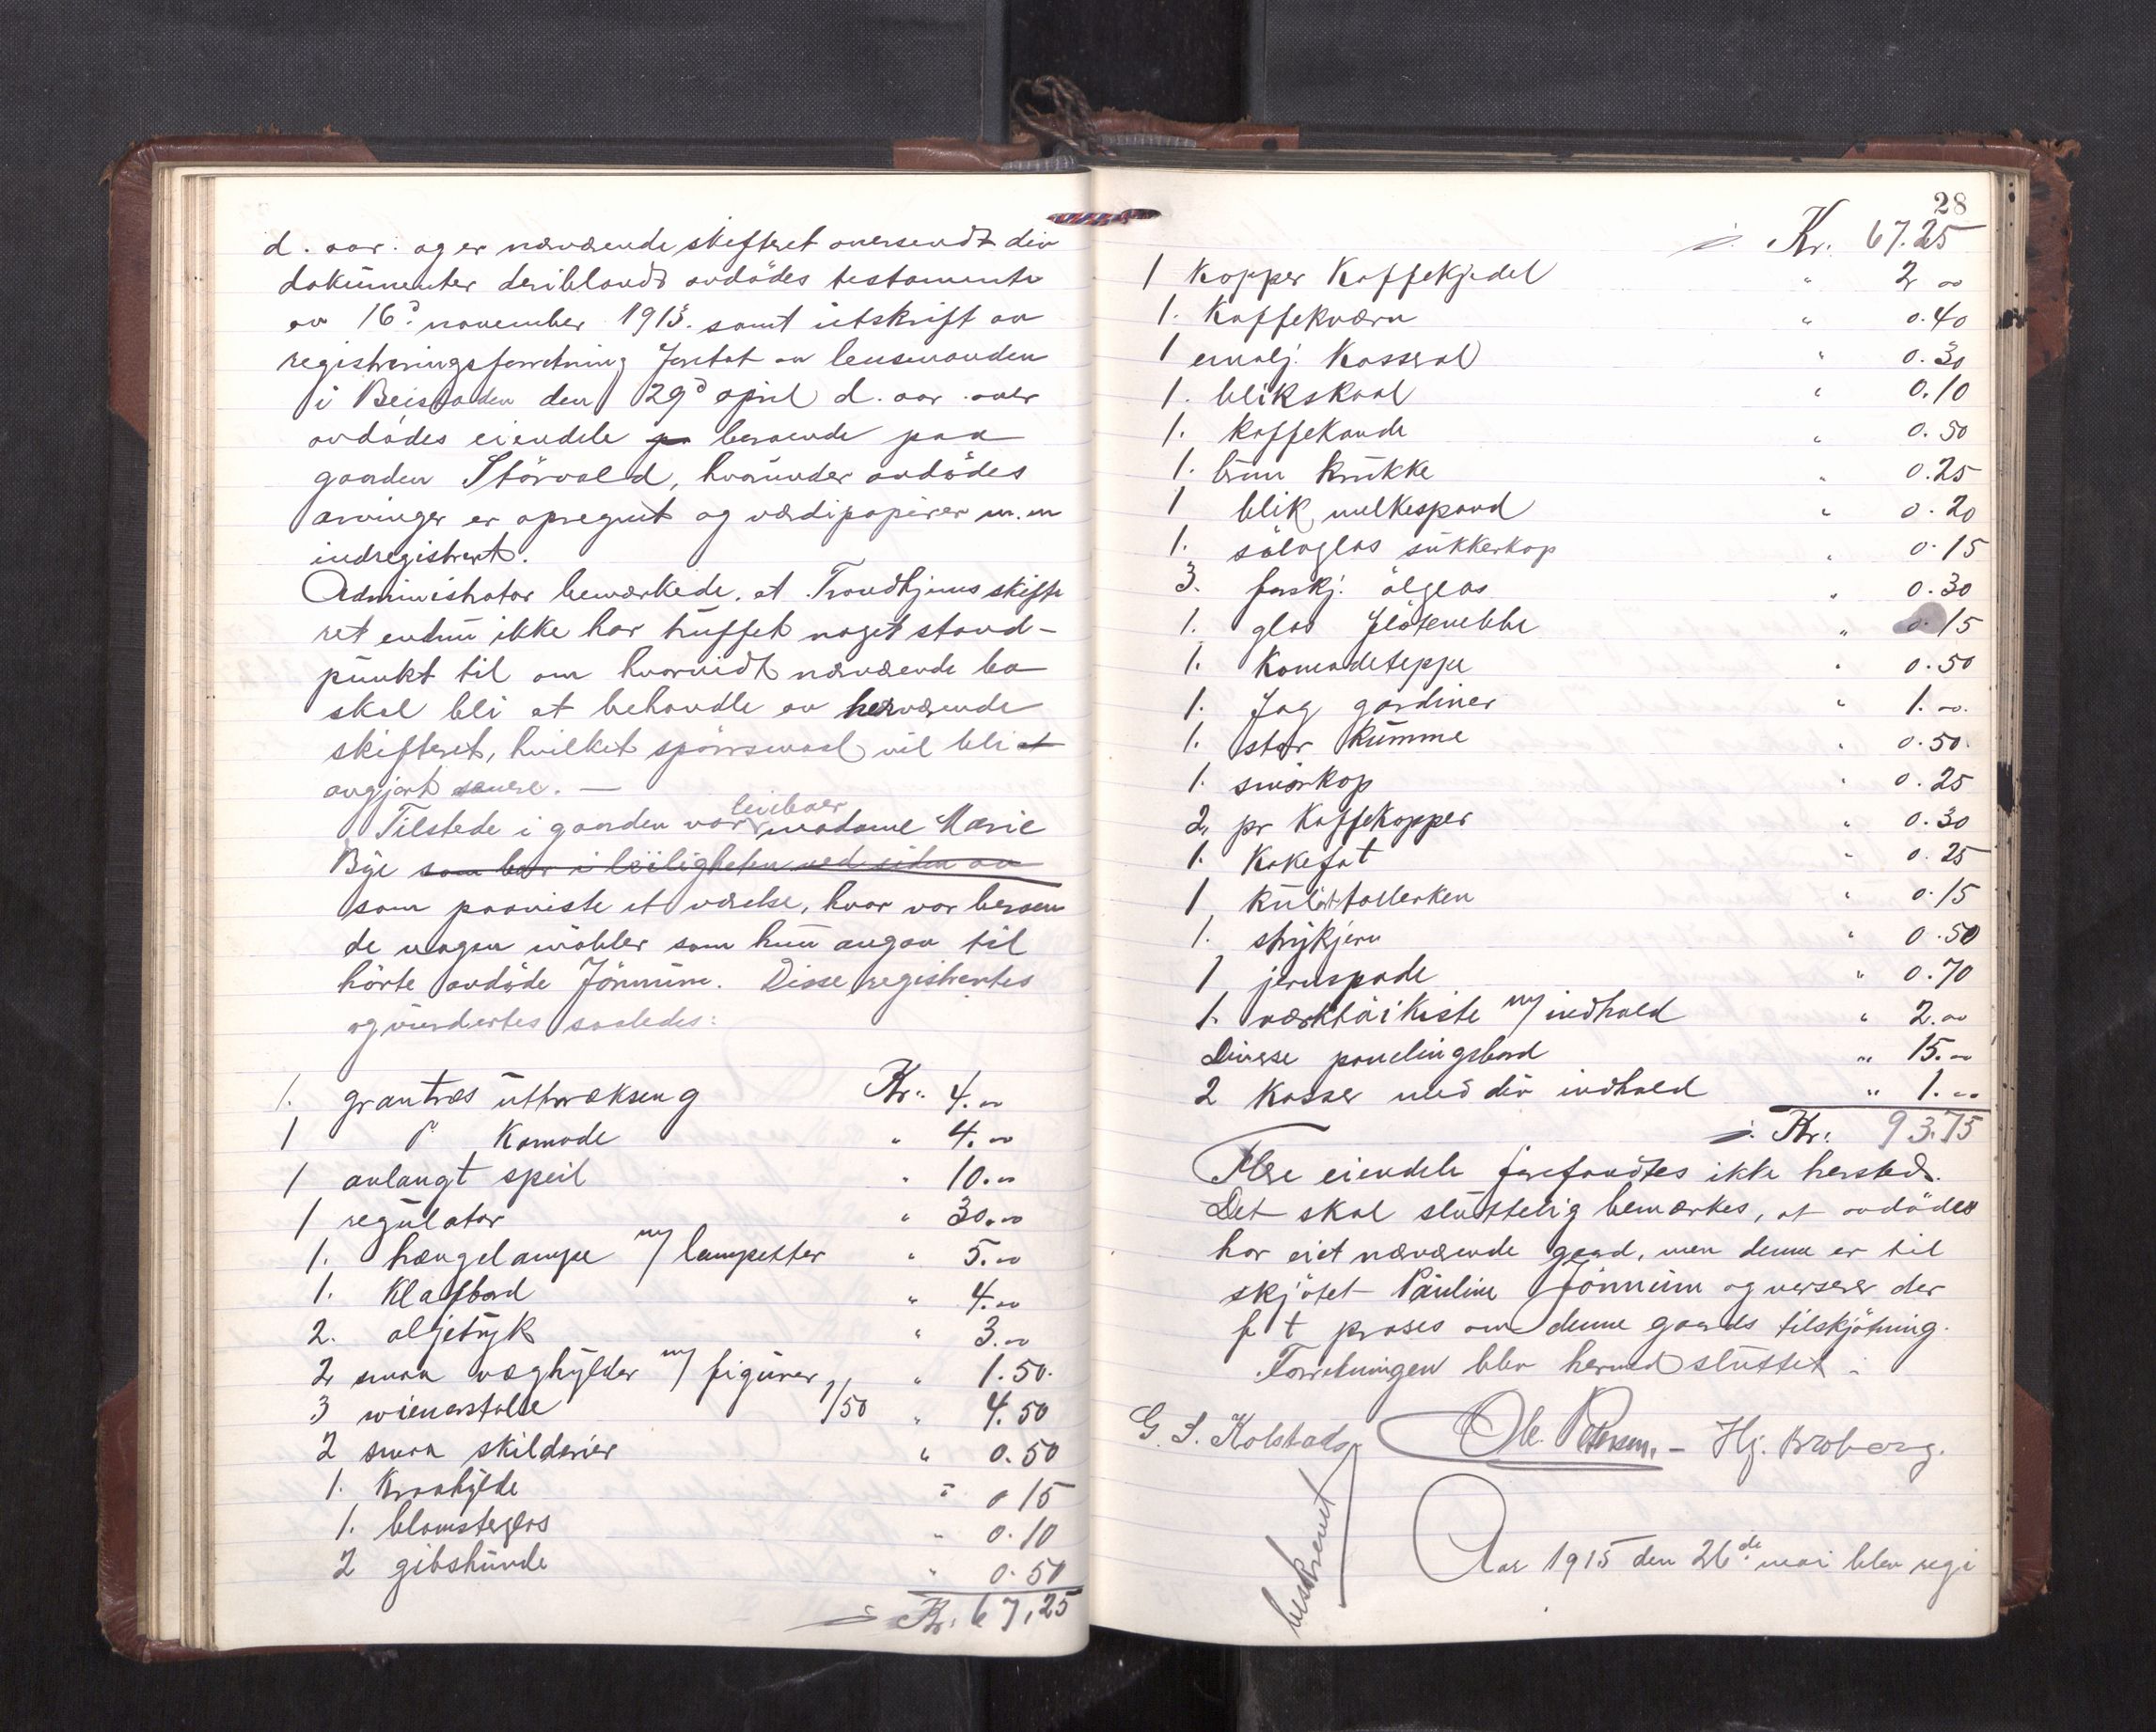 d. aar. og er nærværende skifteret oversendt div
dokumenter deriblandt avdödes testamente
av 16d november 1913. samt utskrift av
registreringsforretning foretat av lensmanden
i Beistaden den 29d april d. aar over
avdödes eiendele pa beroende paa
gaarden Störvold, hvorunder avdödes
arvinger er opregnet og værdipapirer m.m
indregistrert.
Administrator bemærkede, at Trondhjems skifte
ret endnu ikke har truffet noget stand-
punkt til om hvorvidt nærværende bo
skal bli at behandle av herværende
skifteret, hvilket spörsmaal vil bli at
avgjort senere. —
leiboer
Tilstede i gaarden var madame Marie
Bye som bor i leiligheten ved siden av
som paaviste et værelse, hvor var beroen
de nogen möbler som hun angav til
hörte avdöde Jönnum. Disse registrertes
og vurdertes saaledes:
1. grantræs uttræksseng Kr. 4.00
1 d Komode " 4.00
1 avlangt speil " 10.00
1 regulator " 30.00
1. hængelampe m/ lampetter " 5.00
1. Klafbord " 4.00
2. oljetryk " 3.00
2 smaa væghylder m/ figurer " 1.50.
3 wienerstole 1/50 " 4.50
2 smaa skilderier " 0.50
1. Kraahylde " 0 15
1. blomsterglas " 0.10
2 gibshunde " 0.50
Kr. 67,25
28
Kr. 67.25
1 Kopper Kaffekjedel " 2 00
1. Kaffekværn " 0.40
1 emalj. Kasserol " 0.30
1. blikskaal " 0.10
1. Kaffekande " 0.50
1. brun Krukke " 0.25
1 blik melkespand " 0.20
1. sölvglas sukkerkop " 0.15
3. forskj. ölglas " 0.30
1. glas flötenebbe " 0.15
1. Komodeteppe " 0.50
1. Fag gardiner " 1.00.
1. stor Kumme " 0.50.
1. smörkop " 0.25
2 pr Kaffekopper " 0.30
1. Kakefat " 0.25
1 tallerken " 0.15
1. strykjern " 0.50
1 jernspade " 0.70
1. værktöikiste m/ indhold " 2.00
Diverse panelingsbord " 15.00
2 Kasser med div indhold " 1.00
Kr. 93.75
Flere eiendele forefandtes ikke hersteds.
Det skal sluttelig bemærkes, at avdöde
har eiet nærværende gaard, men denne er til
skjötet Pauline Jönnum og verserer der
f t proses om denne gaards tilskjötning.
Forretningen blev hermed sluttet.
G. S. Kolstad Ole Petersen. - Hj. Broberg.
beskrevet
Aar 1915 den 26de mai blev regi